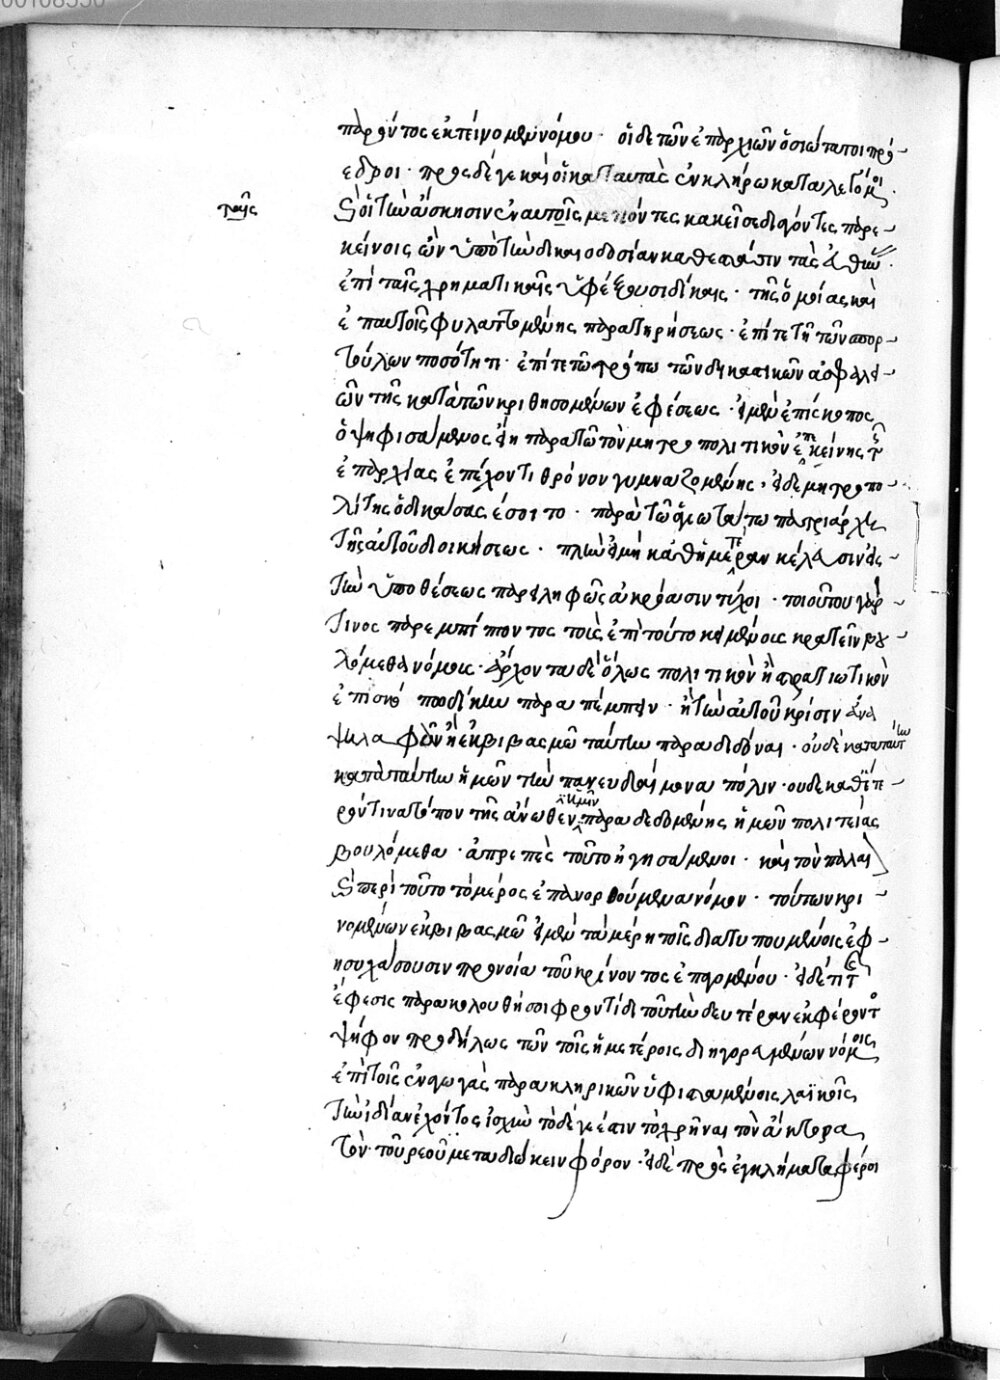 παρόντος ἐκτεινομένου νόμου · οἱ δὲ τῶν ἐπαρχιῶν ὁσιώτατοι πρό-
εδροι · πρὸς δέ γε καὶ οἱ κατὰ ταυτὰς ἐν κλήρω καταλεγόμοι ·
ταῖς
καὶ οἱ τὴν ἄσκησιν ἐν αὐτοῖς μετιόντες κἀκεῖσε διάγοντες παρ᾽ ἐ-
κείνοις ὧν ὑπὸ τὴν δικαιοδοσίαν καθεστᾶσιν τὰς
ἐπὶ ταῖς χρηματικαῖς ὑφέξουσι δίκαις · τῆς ὁμοίας καὶ
ἐπ᾽ αὐτοῖς φυλαττομένης παρατηρήσεως · ἐπί τε τῆ τῶν σπορ-
τούλων ποσότητι · ἐπί τε τῶ τρόπω τῶν δικαστικῶν ἀσφαλει-
ῶν τῆς κατὰ τῶν κριθησομένων ἐφέσεως · εἰ μὲν ἐπίσκοπος
ὁ ψηφισάμενος εἴη παρὰ τῶ τὸν μητροπολιτικὸν ἐπ᾽ ἐκείνης τῆς
ἐπαρχίας ἐπέχοντι θρόνον γυμναζομένης · εἰ δὲ μητροπο-
λίτης ὁ δικάσας ἔσοιτο · παρὰ τῶ ἁγιωτάτω πατριάρχη
τῆς αὐτοῦ διοικήσεως · πλὴν εἰ μὴ καθ᾽ ἡμετέραν κέλευσιν εἰς
τὴν ὑποθέσεως παρειληφὼς ἀκρόασιν τύχοι · τοιούτου γάρ
τινος παρεμπίπτοντος τοῖς ἐπὶ τούτο κειμένοις κρατεῖν βου-
λόμεθα νόμοις · ἄρχοντα δὲ ὅλως πολιτικὸν ἢ στρατιωτικὸν
παραπέμπειν · ἢ τὴν αὐτοῦ κρίσιν ἀνα
ψηλαφᾶν ἢ ἐκβιβασμῶ ταύτην παραδιδόναι · οὐδὲ κατὰ ταύτην
κατὰ ταύτην ἡμῶν τὴν πανευδαίμονα πόλιν · οὐδὲ καθ᾽ ἕτε-
ρόν τινα τόπον τῆς ἄνωθεν ἡμῖν παραδεδομένης ἡμῶν πολιτείας
βουλόμεθα · ἀπρεπὲς τοῦτο ἡγησάμενοι · καὶ τὸν πάλαι
περὶ τοῦτο τὸ μέρος ἐπανορθούμενοι νόμον · τούτων κρι-
νομένων ἐκβιβασμῶ εἰ μὲν τὰ μέρη τοῖς διατυπουμένοις ἐφ-
ησυχάσουσιν προνοία τοῦ κρίνοντος ἐπαγομένου · εἰ δέ τις
ἔφεσις παρακολουθήσοι φροντίδι τοῦ τὴν δευτέραν ἐκφέροντος
ψῆφον προδήλως τῶν τοῖς ἡμετέροις διηγορευμένων νόμοις
ἐπὶ τοῖς ἐναγωγὰς παρὰ κληρικῶν ὑφισταμένοις λαϊκοῖς
τὴν ἰδίαν ἔχοντος ἰσχὺν τὸ δέ γέ ἐστιν τὸ χρῆναι τὸν ἄκτορα
τὸν τοῦ ῥεοῦ μεταδιώκειν φόρον · εἰ δὲ πρὸς ἐγκλήματα φέροι